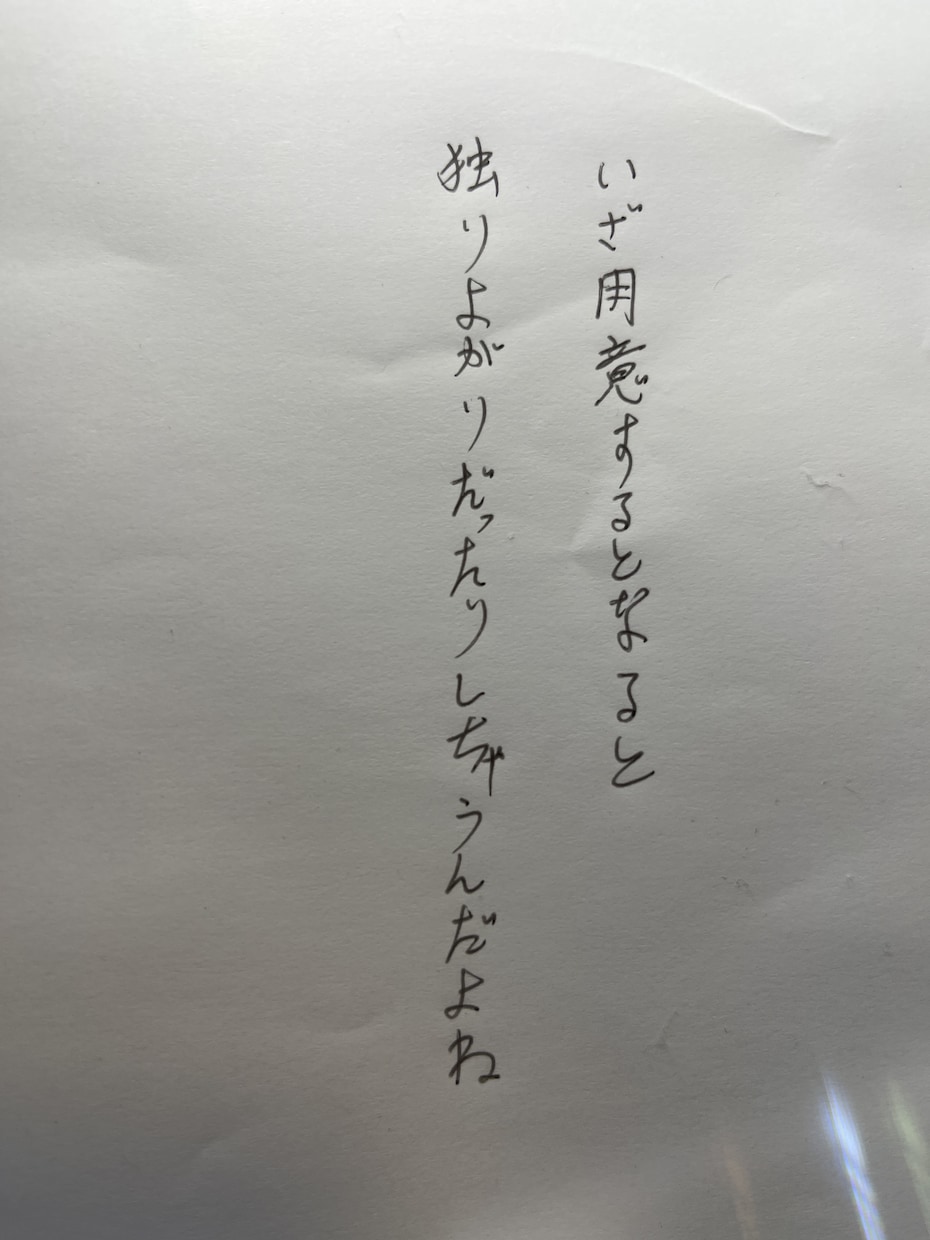 いざ用意するとなると
独りよがりだったりしちゃうんだよね